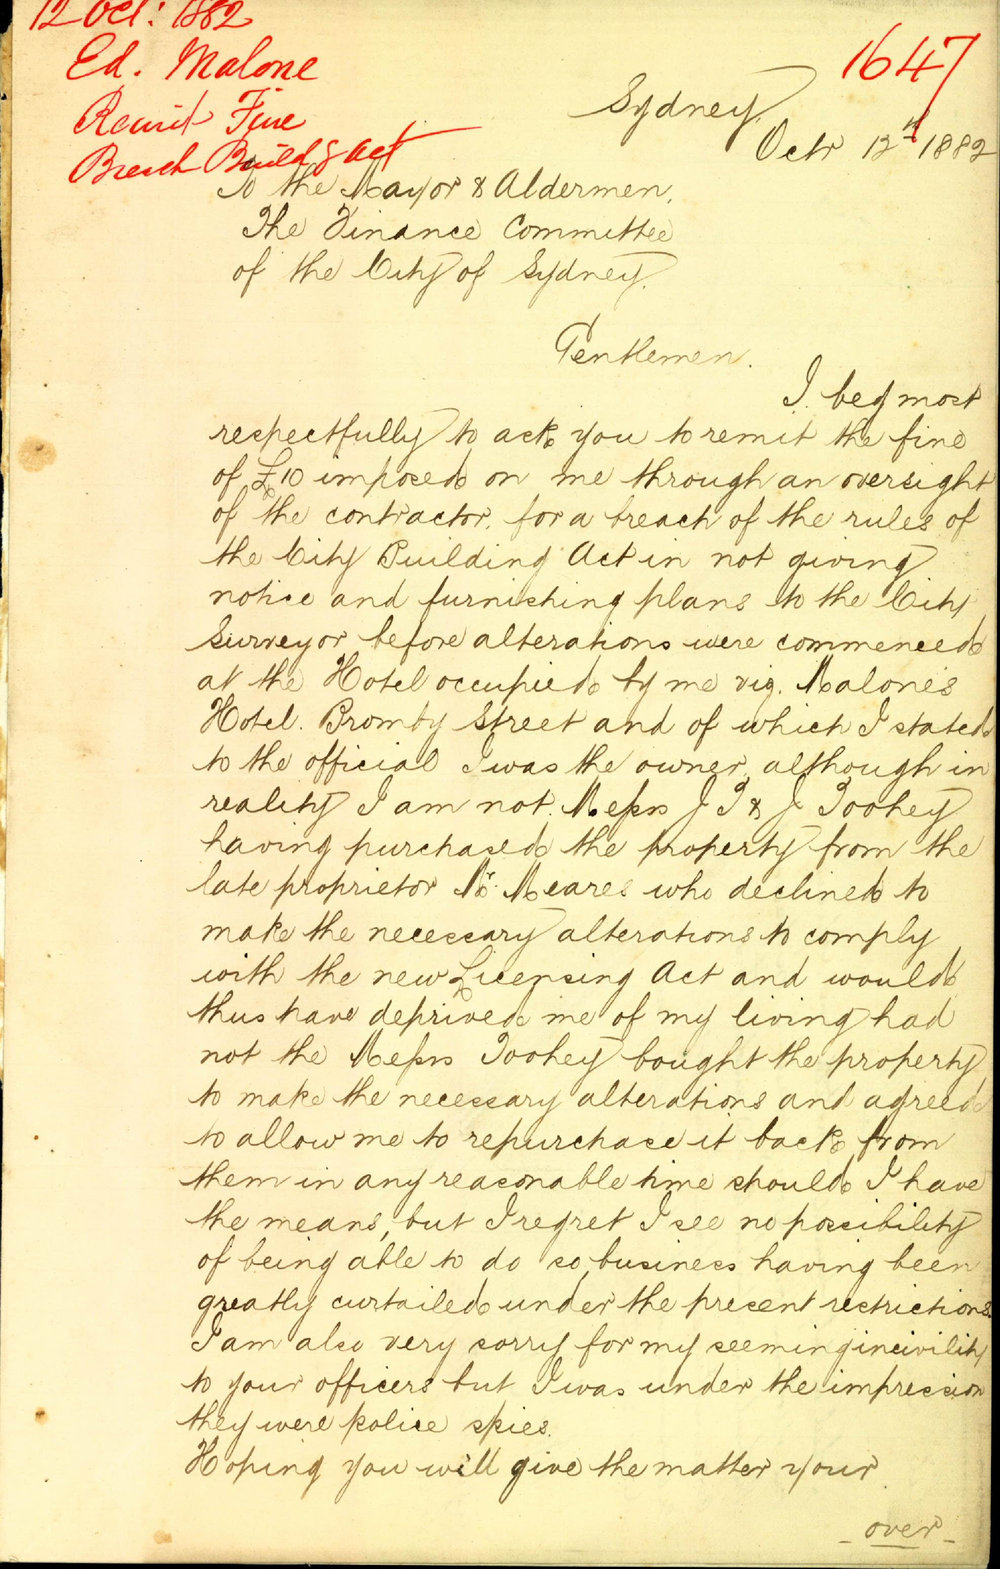 12 Oct: 1882
Ed. Malone
Remit Fine
Breach Build'g Act
1647
Sydney,
Octr 12th 1882
To the Mayor & Aldermen,
The Finance Committee
of the City of Sydney.
Gentlemen.
I beg most
respectfully to ask you to remit the fine
of £10 imposed on me through an oversight
of the contractor, for a breach of the rules of
the City Building Act in not giving
notice and furnishing plans to the City
Surveyor before alterations were commenced
at the Hotel occupied by me viz. Malone's
Hotel. Bromby Street and of which I stated
to the official I was the owner, although in
reality I am not. Messrs J T & J Toohey
having purchased the property from the
late proprietor Mr. Meares who declined to
make the necessary alterations to comply
with the new Licensing Act and would
thus have deprived me of my living had
not the Messrs Toohey bought the property
to make the necessary alterations and agreed
to allow me to repurchase it back from
them in any reasonable time should I have
the means, but I regret I see no possibility
of being able to do so, business having been
greatly curtailed under the present restrictions.
I am also very sorry for my seeming incivility
to your officers but I was under the impression
they were police spies.
Hoping you will give the matter your
over